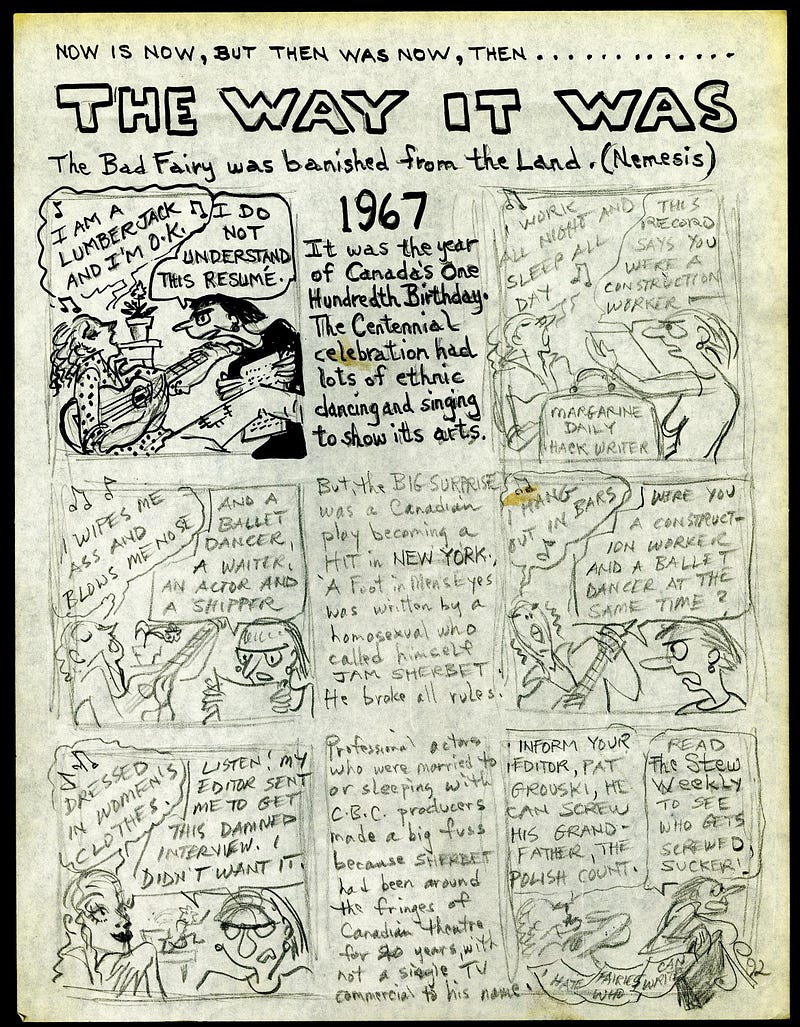 NOW IS NOW, BUT THEN WAS NOW, THEN.............
THE WAY IT WAS
The Bad Fairy was banished from the Land. (Nemesis)
I AM A
LUMBERJACK
AND I'M O.K.
I DO
NOT
UNDERSTAND
THIS RESUMÉ.
1967
It was the year
of Canada's One
Hundredth Birthday.
The Centennial
celebration had
lots of ethnic
dancing and singing
to show its arts.
I WORK
ALL NIGHT AND
SLEEP ALL
DAY
THIS
RECORD
SAYS YOU
WERE A
CONSTRUCTION
WORKER
MARGARINE
DAILY
HACK WRITER
I WIPES ME
ASS AND
BLOWS ME NOSE
AND A
BALLET
DANCER,
A WAITER,
AN ACTOR AND
A SHIPPER
But, the BIG SURPRISE
was a Canadian
play becoming a
HIT in NEW YORK.
'A Foot in Mens Eyes
was written by a
homosexual who
called himself
JAM SHERBET.
He broke all rules.
I HANG
OUT IN BARS
WERE YOU
A CONSTRUCT-
ION WORKER
AND A BALLET
DANCER AT THE
SAME TIME?
DRESSED
IN WOMEN'S
CLOTHES.
LISTEN! MY
EDITOR SENT
ME TO GET
THIS DAMNED
INTERVIEW. I
DIDN'T WANT IT.
Professional actors
who were married to
or sleeping with
C.B.C. producers
made a big fuss
because SHERBET
had been around
the fringes of
Canadian theatre
for 20 years, with
not a single TV
commercial to his name.
INFORM YOUR
EDITOR, PAT
GROUSKI, HE
CAN SCREW
HIS GRAND-
FATHER, THE
POLISH COUNT.
READ
The Stew
Weekly
TO SEE
WHO GETS
SCREWED,
SUCKER!
I HATE FAIRIES
WHO CAN
WRITE
92